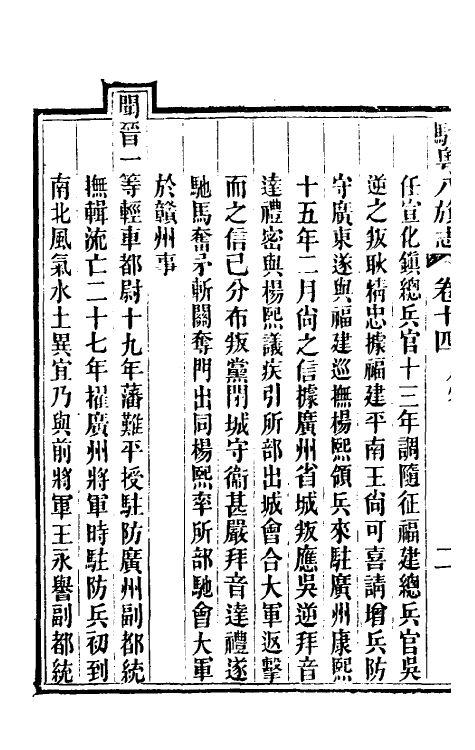 駐粵八旗志
卷十四
二
任宣化鎮總兵官十三年調隨征福建總兵官吳
逆之叛耿精忠據福建平南王尚可喜請增兵防
守廣東遂與福建巡撫楊熙領兵來駐廣州康熙
十五年二月尚之信據廣州省城叛應吳逆拜音
達禮密與楊熙議疾引所部出城會合大軍返擊
而之信已分布叛黨閉城守衞甚嚴拜音達禮遂
馳馬奮矛斬關奪門出同楊熙率所部馳會大軍
於贛州事
聞晉一等輕車都尉十九年藩難平授駐防廣州副都統
撫輯流亡二十七年擢廣州將軍時駐防兵初到
南北風氣水土異宜乃與前將軍王永譽副都統